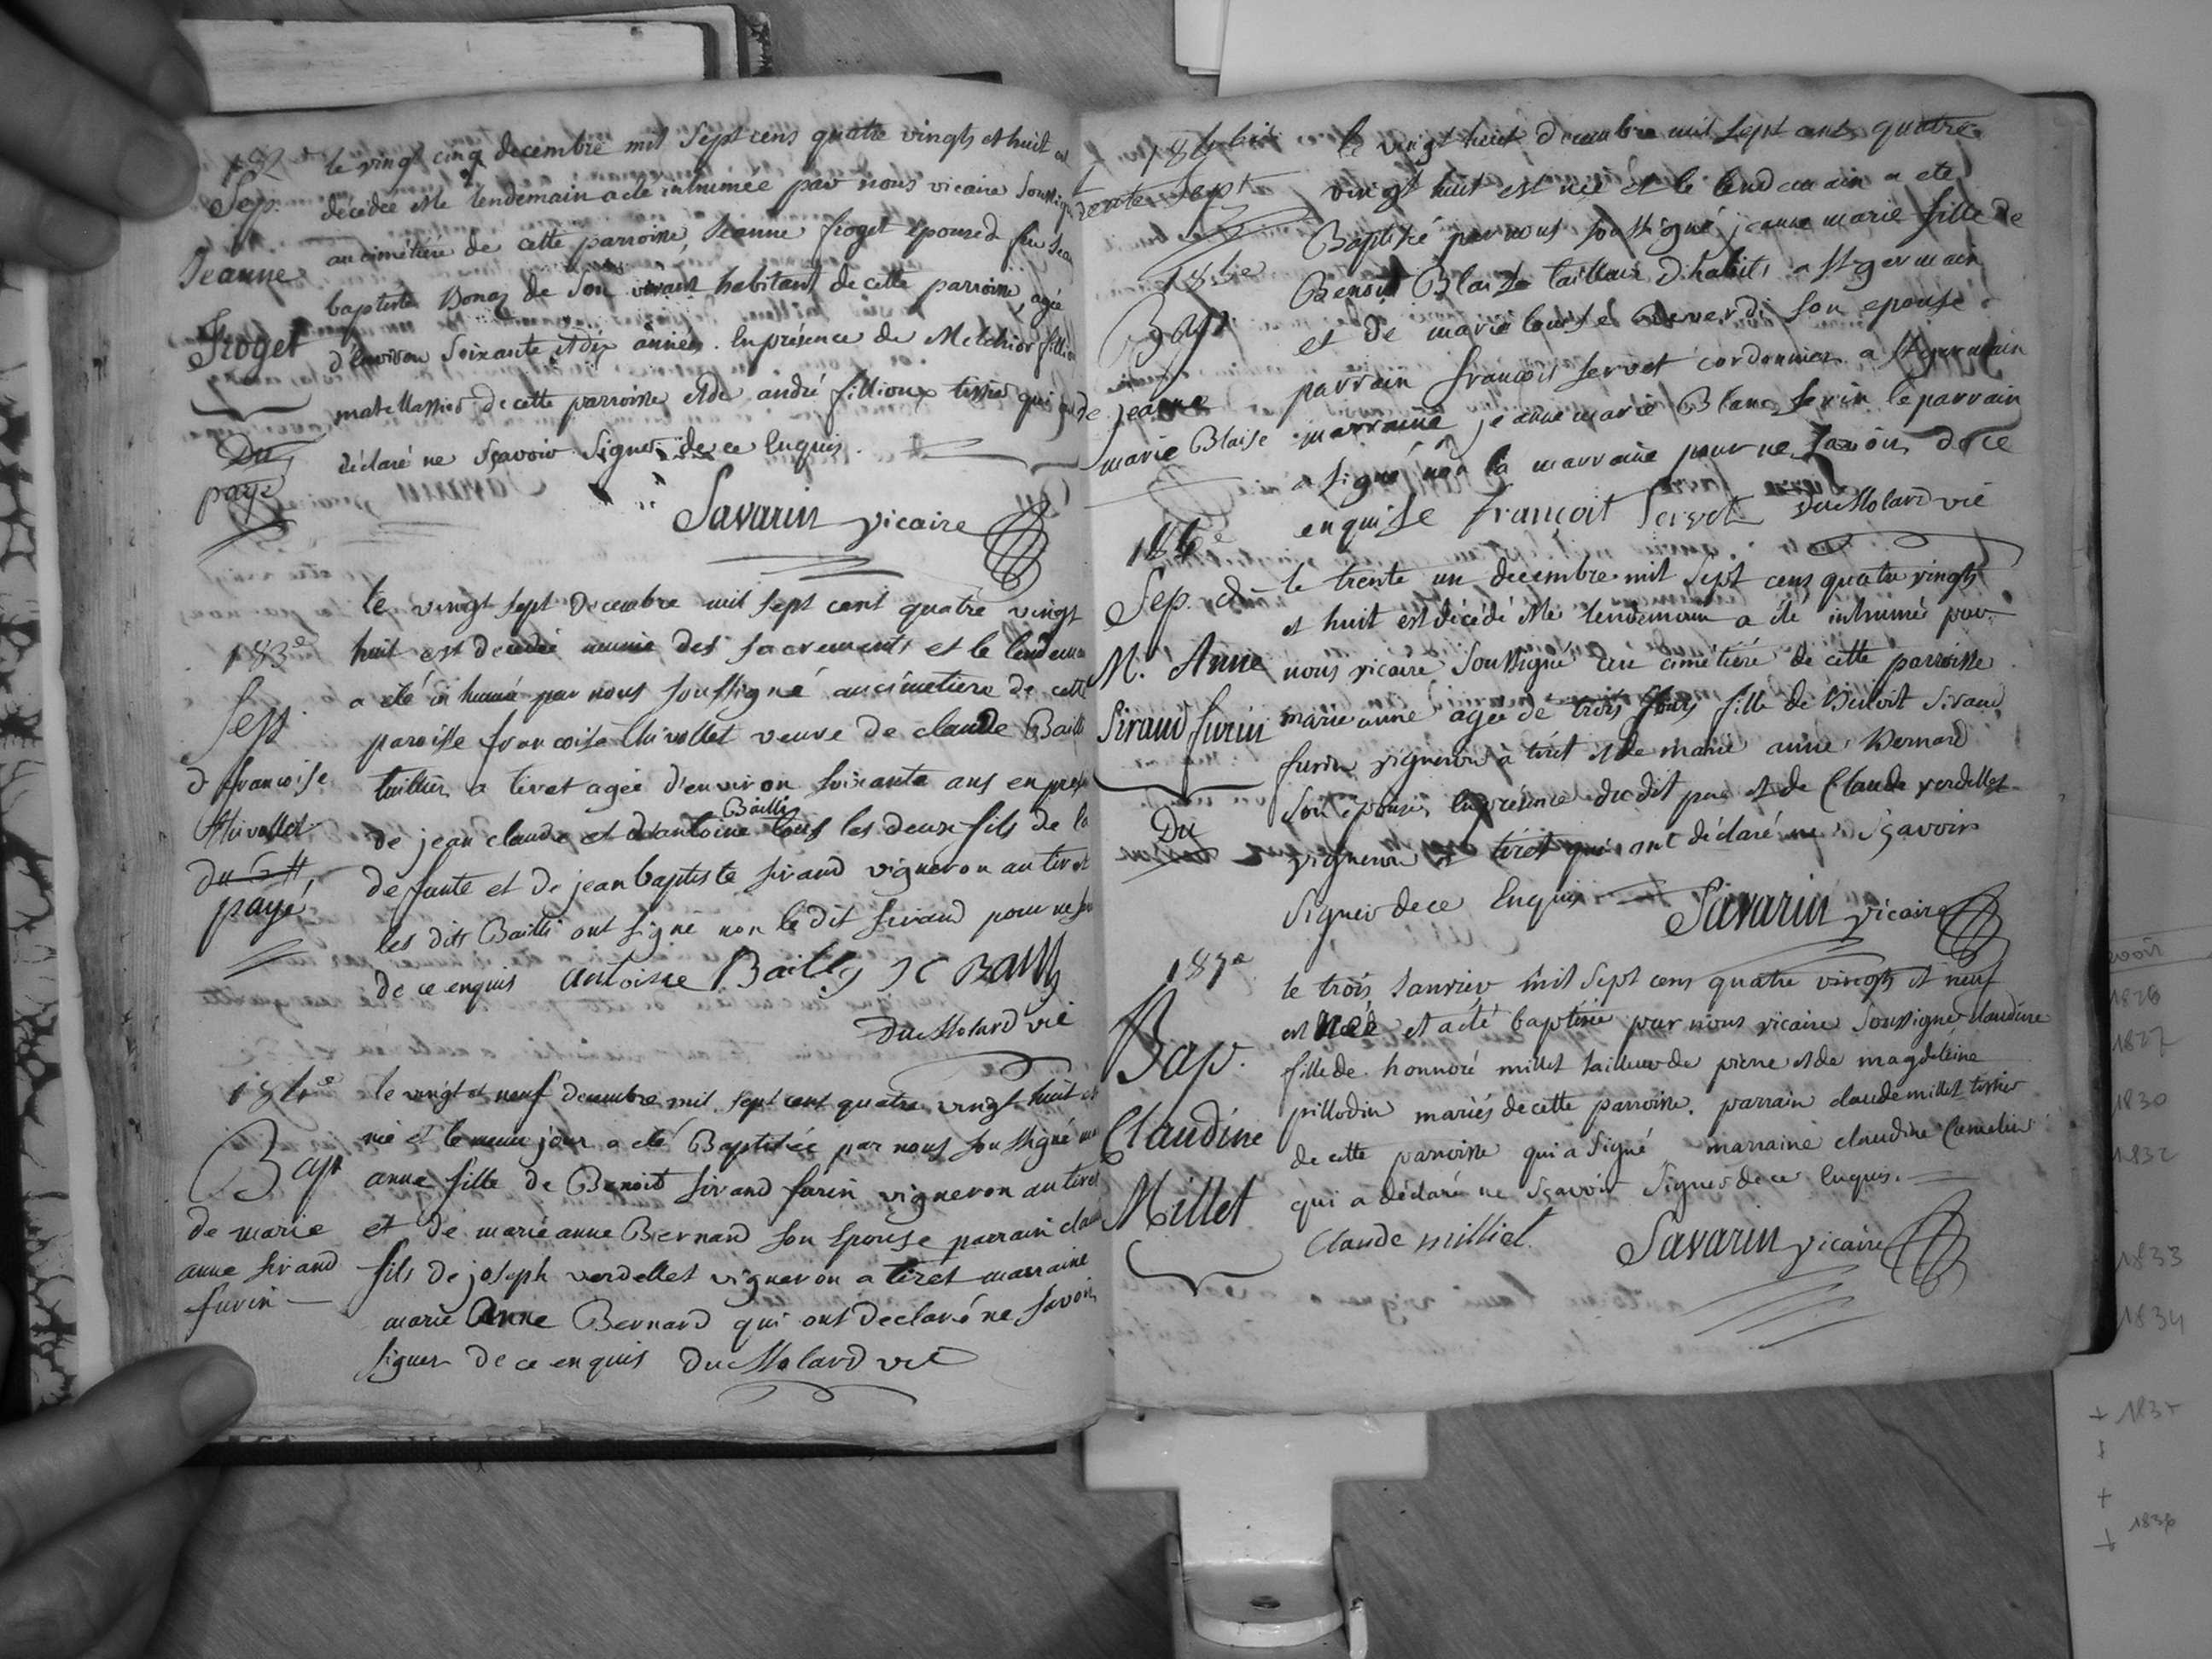 182e
Sep.
Jeanne
Froget
Du
payé
le vingt cinq decembre mil sept cens quatre vingts et huit est
décédée et le lendemain a été inhumée par nous vicaire soussigné
au cimétière de cette parroisse, Jeanne froget epouse d feu Jean
baptiste Bonaz de son vivant habitant de cette parroisse, agée
d'environ soixante et dix années. En présence de Melchior fillion
matellassier de cette parroisse et de andré fillioux tissier qui ont
déclaré ne sçavoir signer de ce Enquis.
Savarin vicaire
183e
Sep
d françoise
Chivollet
du 6 #
payé
le vingt sept decembre mil sept cent quatre vingt
huit est decedée munie des sacrements et le lendemain
a été inhumé par nous soussigné au cimetiere de cette
paroisse françoise Chivollet veuve de claude Bailli
taillieur a tiret agée d'environ soixante ans en prese
de jean claude et d'antoine Bailli tous les deux fils de la
defunte et de jean baptiste sirand vigneron au tiret
les dits Bailli ont signé non le dit sirand pour ne sa
de ce enquis antoine Bailly J C Bailly
Du Molard vic
184e
Bap
de marie
anne sirand
furin
le vingt et neuf decembre mil sept cent quatre vingt huit est
née et le meme jour a eté Baptisée par nous soussigné marie
anne fille de Benoit sirand furin vigneron au tiret
et de marie anne Bernard son epouse parrain claude
fils de joseph verdellet vigneron a tiret marraine
marie Anne Bernard qui ont declaré ne savoir
signer de ce enquis Du Molard vic
184 bis
trente sept
185e
Bap.
de jeanne
marie Blaise
le vingt huit decembre mil sept cens quatre
vingt huit est née et le lendemain a ete
Baptisé par nous soussigné jeanne marie fille de
Benoit Blaise tailleur d'habits a st germain
et de marie louise Reverdi son epouse
parrain françois servet cordonnier a st germain
marraine jeanne marie Blanc serin le parrain
a signé non la marraine pour ne savoir de ce
enquise françoit Servet Du Molard vic
186e
Sep. d
M. Anne
Sirand furin
Du
le trente un decembre mil sept cens quatre vingts
et huit est décédé et le lendemain a été inhumé par
nous vicaire soussigné au cimétière de cette parroisse
marie anne agée de trois jours fille de Benoit Sirand
furin vigneron à tiret et de marie anne Bernard
son epouse, En présence du dit pere et de Claude verdellet
vigneron à tiret qui ont déclaré ne sçavoir
signer de ce Enquis Savarin vicaire
187e
Bap.
Claudine
Millet
le trois Janvier mil sept cens quatre vingts et neuf
est née et a été baptisée par nous vicaire soussigné Claudine
fille de honnoré millet tailleur de pierre et de magdeleine
prillodin mariés de cette parroisse. parrain claude millet tissier
de cette parroisse qui a signé marraine claudine Camelin
qui a déclaré ne sçavoir signer de ce Enquis.
Claude milliet Savarin vicaire
1826
1827
1830
1832
1833
1834
+ 1835
+
1836